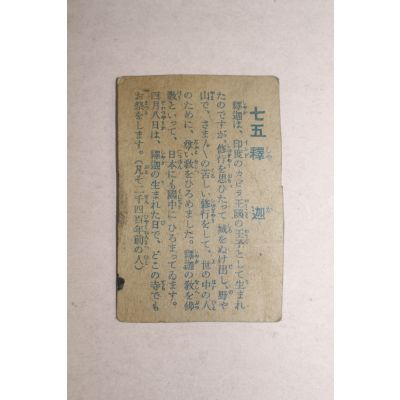 七五 釋迦
釋迦は、印度のカピラ王國の王子として生まれ
たのですが、修行を思ひたつて城をぬけ出し、野や
山で、さま〲の苦しい修行をして、世の中の人
のために、尊い教をひろめました。釋迦の教を佛
教といって、日本にも國中にひろまってゐます。
四月八日は、釋迦の生まれた日で、どこの寺でも
お祭をします。（凡そ二千四百年前の人）